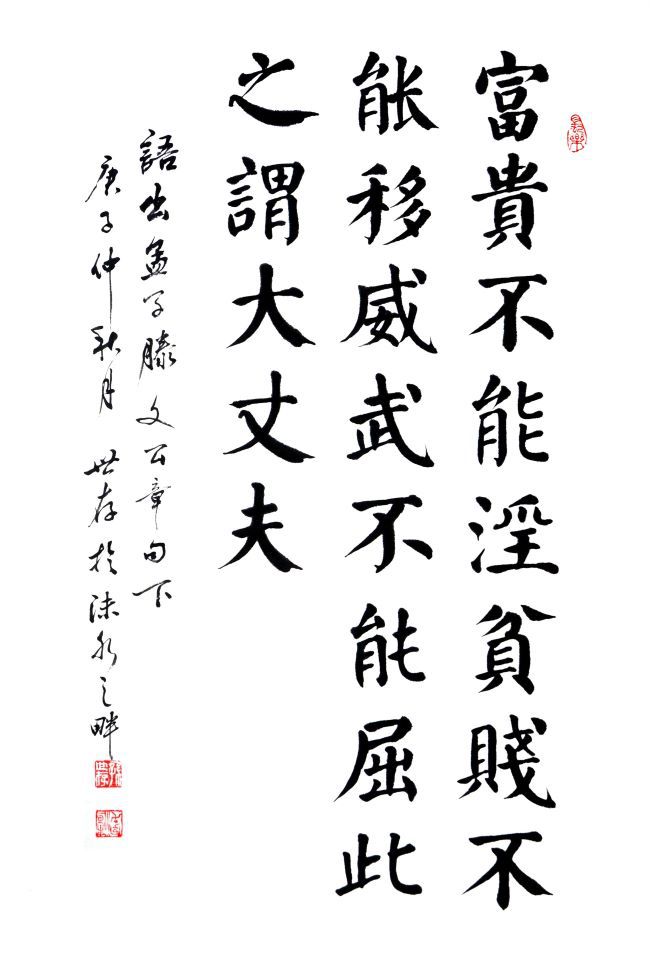 富貴不能淫貧賤不
能移威武不能屈此
之謂大丈夫
語出孟子滕文公章句下
庚子仲秋月 世存於涑水之畔